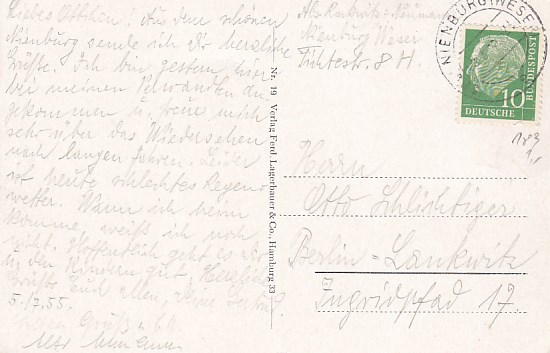 Liebes Ottchen! Aus dem schönen
Nienburg sende ich Dir herzliche
Grüße. Ich bin gestern hier
bei meinen Verwandten
angekommen u. freue mich
sehr über das Wiedersehen
nach langen Jahren. Leider
ist heute schlechtes Regen-
wetter. Wann ich heim
komme, weiß ich noch
nicht. Hoffentlich geht es Dir
u. den Kindern gut. Herzliche
Grüße Euch allen,
5.7.55.
Nienburg Weser
Fichtestr. 8 H.
NIENBURG (WESER)
DEUTSCHE
BUNDESPOST
10
Nr. 19 Verlag Ferd. Lagerbauer & Co., Hamburg 33
Herrn
Otto Schlichtiger
Berlin-Lankwitz
Ingridpfad 17